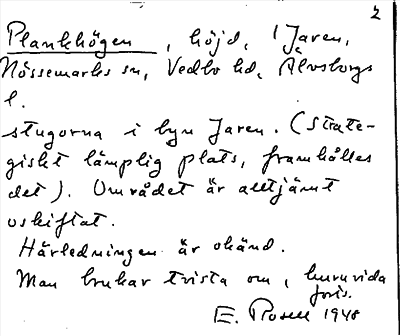 2
Plankhögen, höjd, i Jaren,
Nössemarks sn, Vedbo hd, Älvsborgs
l.
stugorna i byn Jaren. (Strate-
giskt lämplig plats, framhålles
det). Området är alltjämt
oskiftat.
Härledningen är okänd.
Man brukar tvista om, huruvida
forts.
E. Rosell 1948